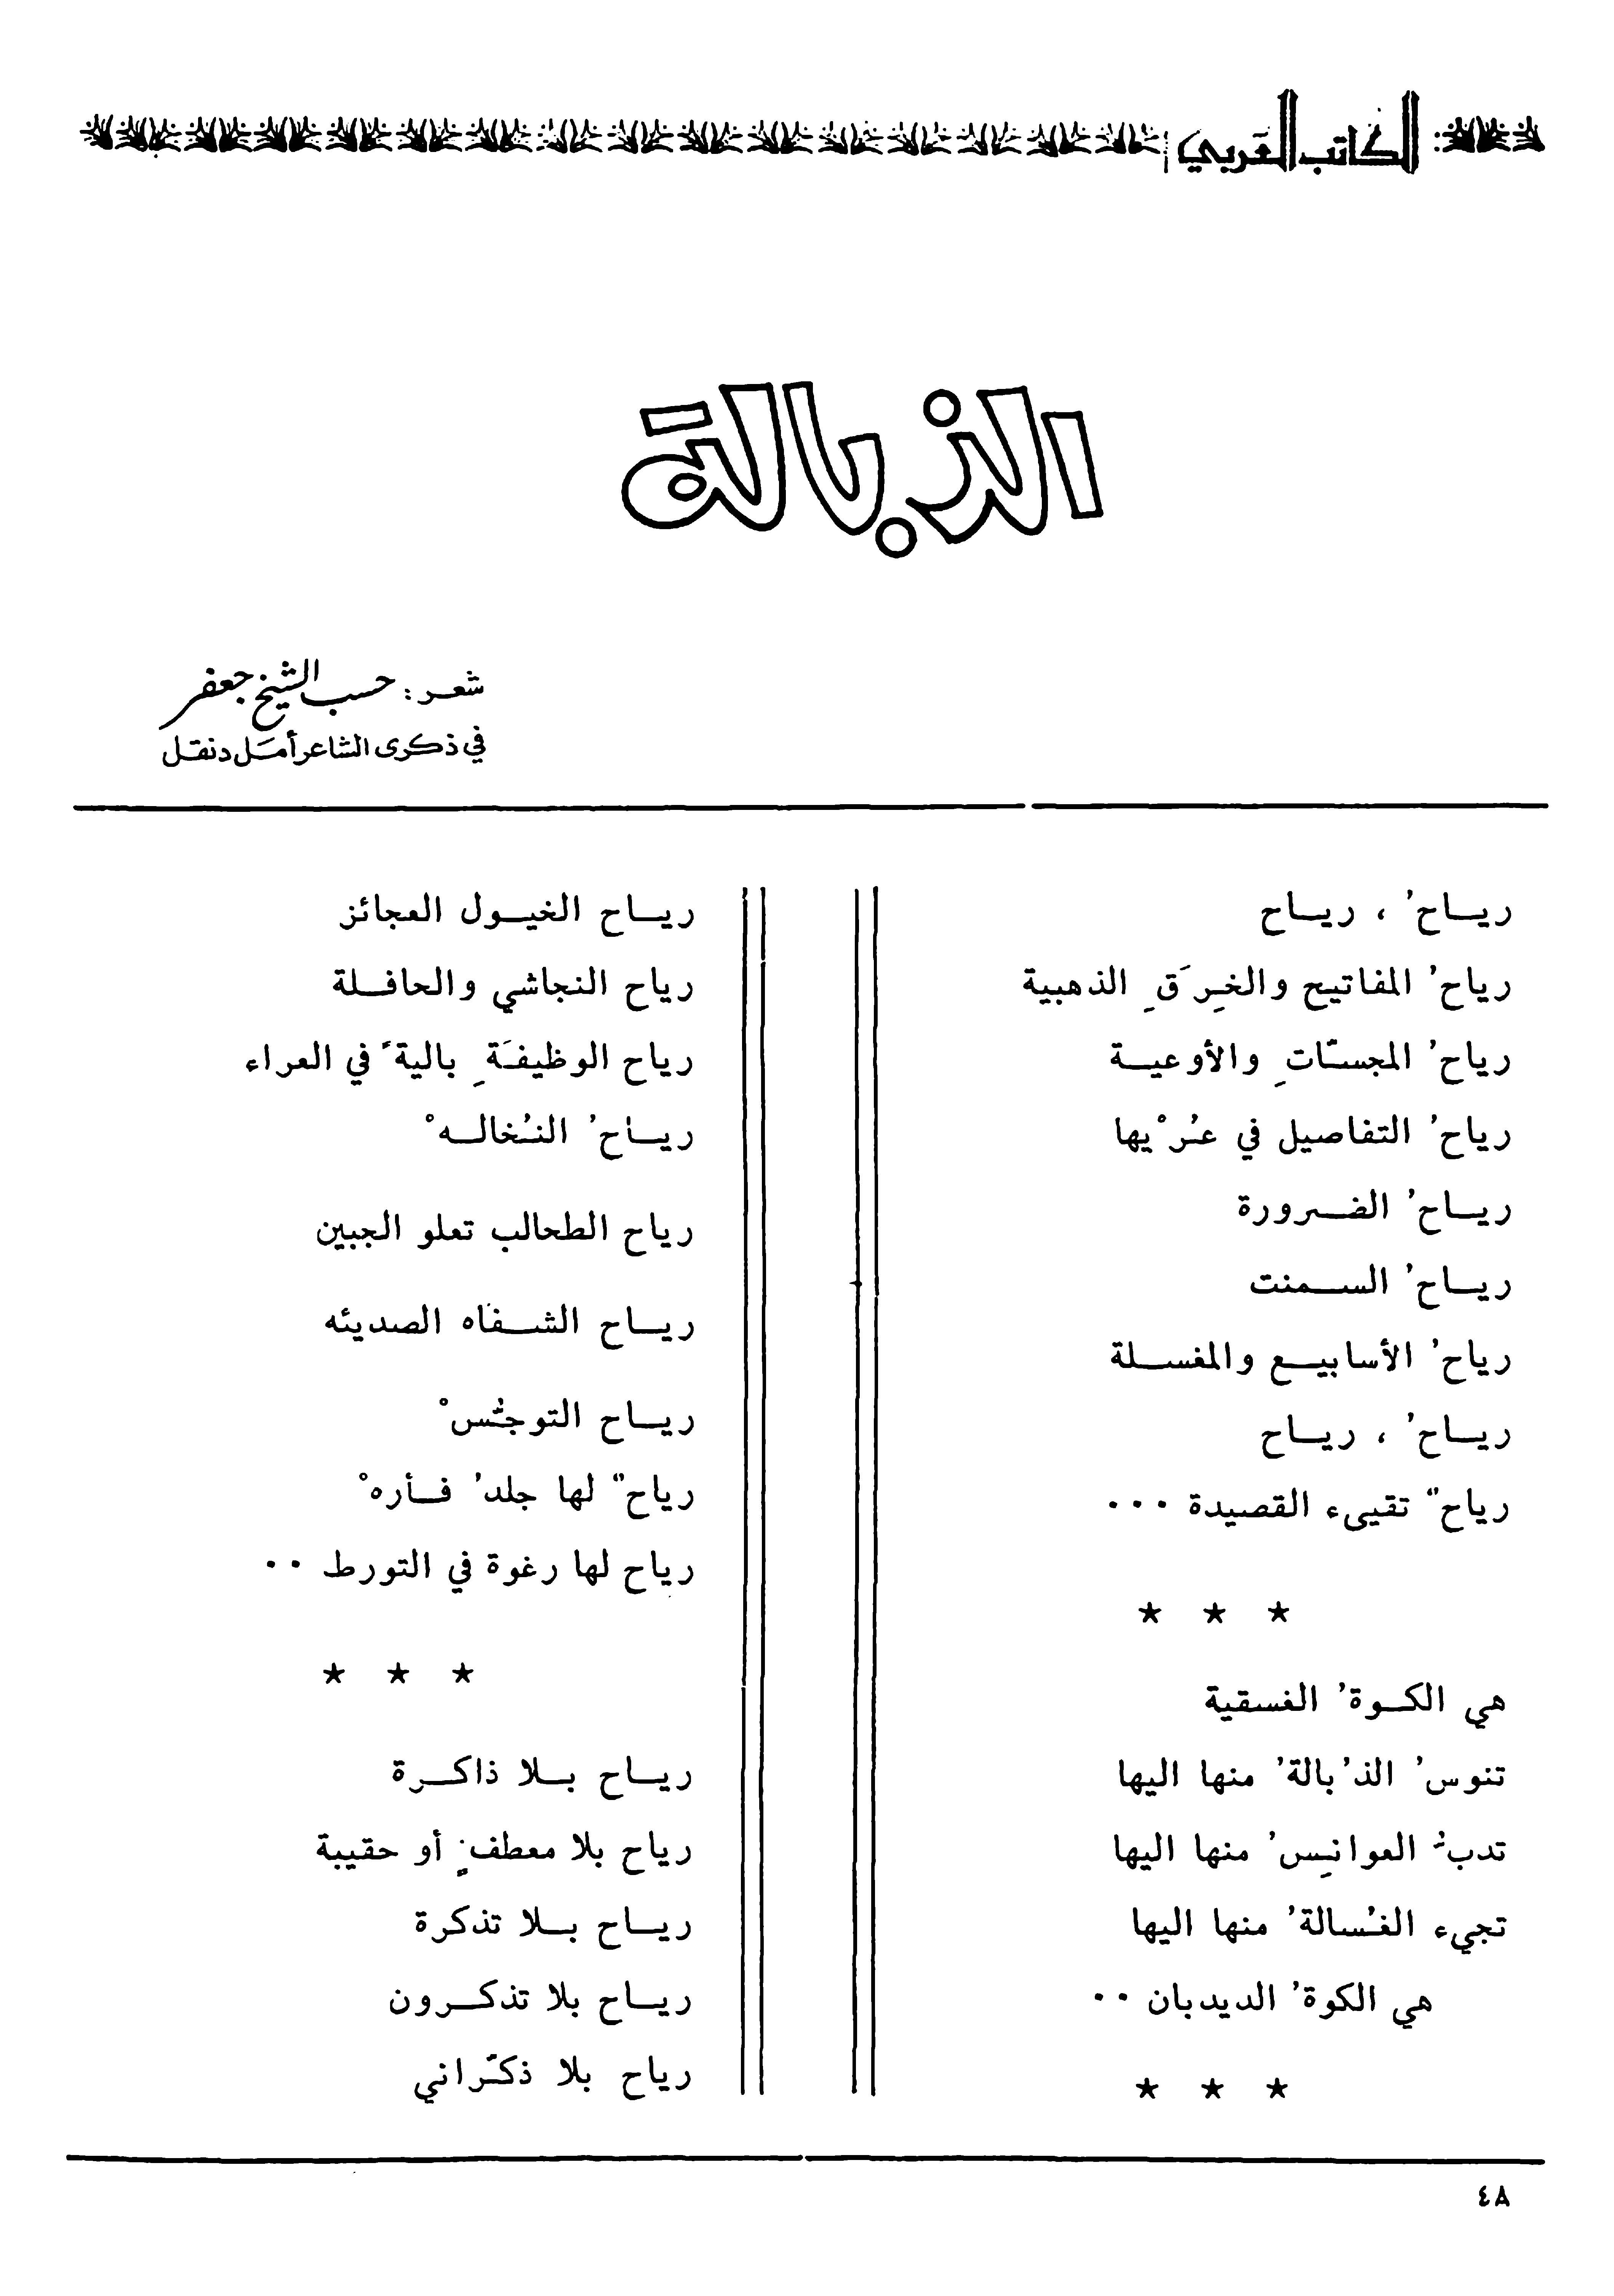 الكاتب العربي
الذبالة
شعر: حسب الشيخ جعفر
في ذكرى الشاعر أمَل دنقل
ريــاحُ ، ريــاح
رياحُ المفاتيح والخِرَقِ الذهبية
رياحُ المجسّاتِ والأوعيــة
رياحُ التفاصيل في عُرْيها
ريــاحُ الضــرورة
ريــاحُ الســمنت
رياحُ الأسابيــع والمغســلة
ريــاحُ ، ريــاح
رياحٌ تقيىء القصيدة ...
* * *
هي الكــوةُ الغسقية
تنوسُ الذُبالةُ منها اليها
تدبُّ العوانِسُ منها اليها
تجيء الغُسالةُ منها اليها
هي الكوةُ الديدبان ..
* * *
ريــاح الخيــول العجائز
رياح النجاشي والحافــلة
رياح الوظيفَةِ باليةً في العراء
ريــاحُ النُخالــهْ
رياح الطحالب تعلو الجبين
ريــاح الشــفاه الصديئه
ريــاح التوجُّسْ
رياحٌ لها جلدُ فــأرهْ
رياح لها رغوة في التورط ..
* * *
ريــاح بــلا ذاكــرة
رياح بلا معطفٍ أو حقيبة
ريــاح بــلا تذكرة
ريــاح بلا تذكــرون
رياح بلا ذكّراني
٤٨